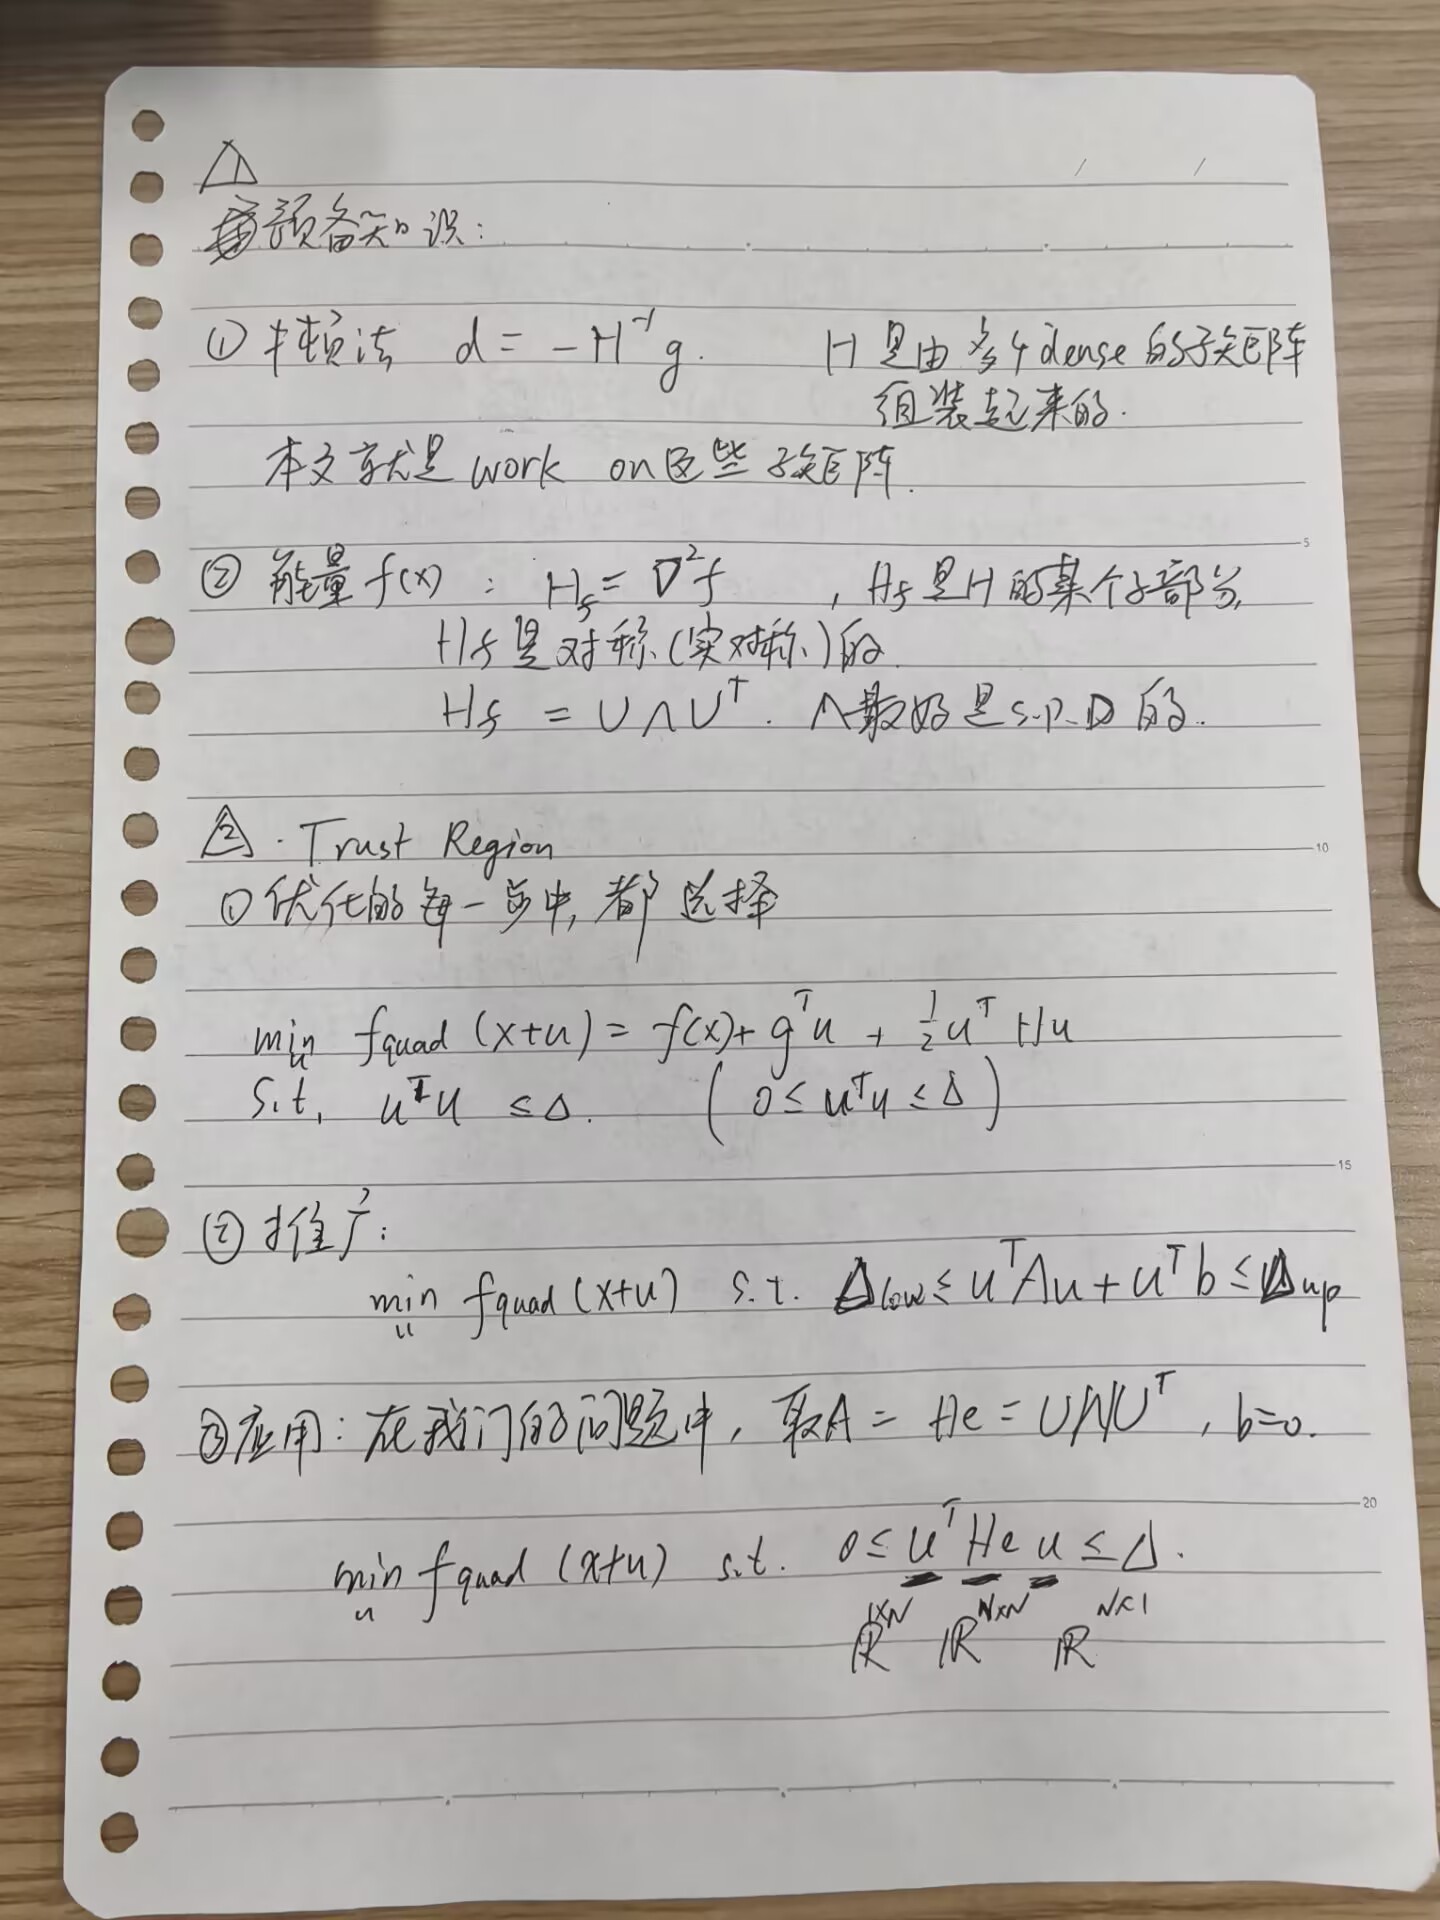 △1
预备知识:
① 牛顿法 d = -H⁻¹g. H是由多个dense的子矩阵
组装起来的.
本文就是work on这些子矩阵.
5
② 能量f(x) : H_f = ∇²f , H_f是H的某个子部分,
H_f是对称(实对称)的
H_f = UΛUᵀ. Λ最好是S.P.D的.
△2. Trust Region
10
① 优化的每一步中,都选择
min_u fquad (x+u) = f(x)+ gᵀu + ½uᵀHu
s.t. uᵀu ≤ Δ. (0 ≤ uᵀu ≤ Δ)
15
② 推广:
min_u fquad (x+u) s.t. Δlow ≤ uᵀAu + uᵀb ≤ Δup
③ 应用: 在我们的问题中, 取A = He = UΛUᵀ, b=0.
20
min_u fquad (x+u) s.t. 0 ≤ uᵀ He u ≤ Δ.
ℝ^{1×N} ℝ^{N×N} ℝ^{N×1}